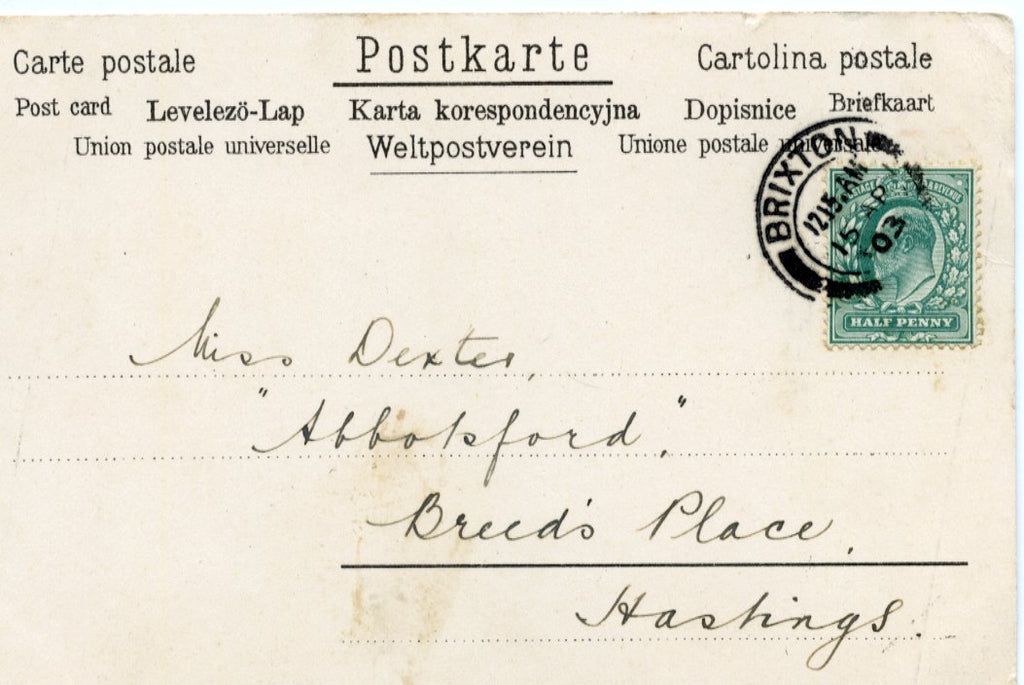 Carte postale Postkarte Cartolina postale
Post card Levelezö-Lap Karta korespondencyjna Dopisnice Briefkaart
Union postale universelle Weltpostverein Unione postale universale
BRIXTON
12.15.AM
15 AP
03
HALF PENNY
Miss Dexter,
"Abbotsford",
Breed's Place,
Hastings.